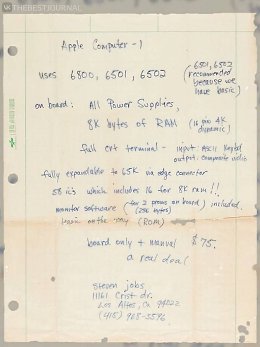 THEBESTJOURNAL
Apple Computer - 1
uses 6800, 6501, 6502
(6501, 6502
recommended
because we
have basic)
on board: All Power Supplies,
8K bytes of RAM (16 pin 4K
dynamic)
full crt terminal - input: ASCII Keybd
output: composite video
fully expandable to 65K via edge connector
58 ic's which includes 16 for 8K ram!!
monitor software (for 2 proms on board) included.
(256 bytes)
basic on the way (ROM)
board only + manual $75.
a real deal
steven jobs
11161 Crist dr.
Los Altos, Ca 94022
(415) 968-3596